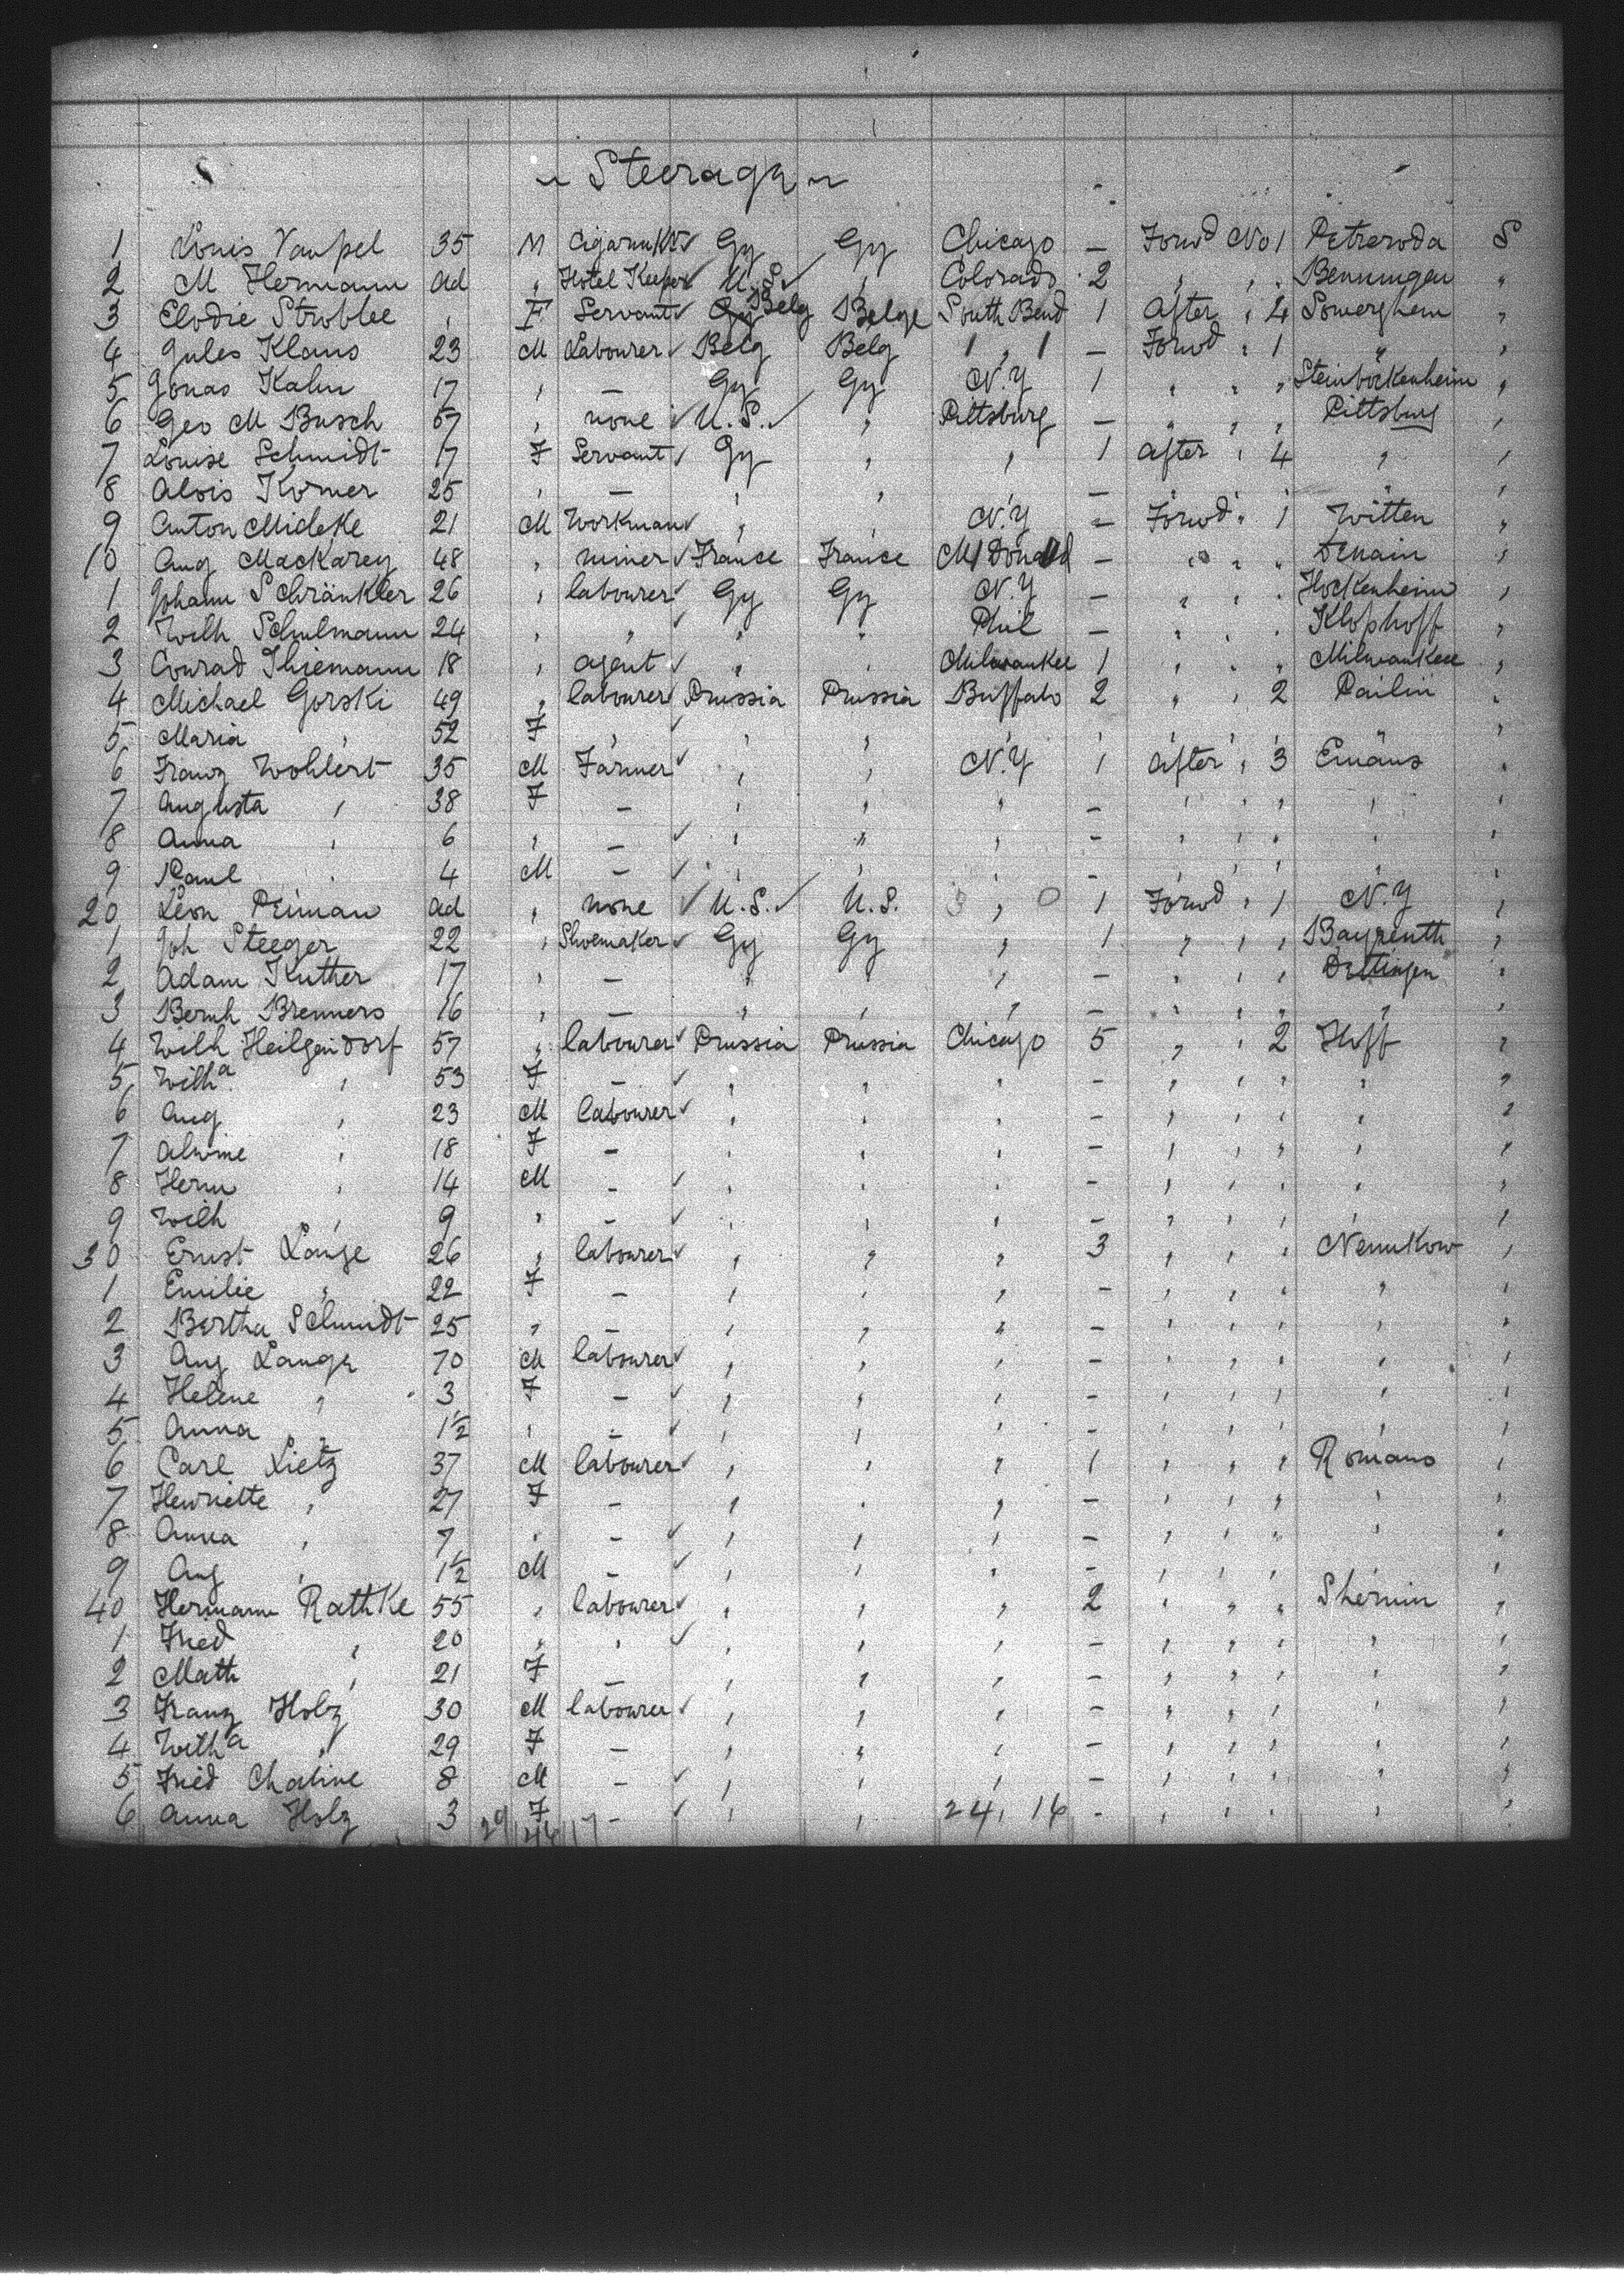 ~ Steerage ~
1 Louis Vaupel 35 M Cigarmkr ✓ Gy Gy Chicago – Forwd No 1 Petreroda S
2 M Hermann ad " Hotel Keeper ✓ U.S. ✓ " Colorado 2 " " " Benningen "
3 Elodie Strobbee " F Servant ✓ Gy Belg Belge South Bend 1 After " 4 Somerghem "
4 Jules Klaus 23 M Labourer ✓ Belg Belg " " – Forwd " 1 " "
5 Jonas Kahn 17 " – Gy Gy N.Y 1 " " " Steinbockenheim "
6 Geo M Busch 57 " none ✓ U.S. ✓ " Pittsburg – " " " Pittsburg "
7 Louise Schmidt 17 F Servant ✓ Gy " " 1 After " 4 " "
8 Alois Korner 25 " – " " " – " " " " "
9 Anton Mideke 21 M Workman ✓ " " N.Y – Forwd " 1 Witten "
10 Aug Mackarey 48 " miner ✓ France France McDonald – " " " Denain "
1 Johann Schränkler 26 " labourer ✓ Gy Gy N.Y – " " " Hockenheim "
2 Wilh Schulmann 24 " " ✓ " " Phil – " " " Klophoff "
3 Conrad Thiemann 18 " agent ✓ " " Milwaukee 1 " " " Milwaukee "
4 Michael Gorski 49 " labourer ✓ Prussia Prussia Buffalo 2 " " 2 Pailin "
5 Maria " 52 F " ✓ " " " " " " " " "
6 Franz Wohlert 35 M Farmer ✓ " " N.Y 1 After " 3 Emaus "
7 Augusta " 38 F – " " " – " " " " "
8 Anna " 6 " – ✓ " " " – " " " " "
9 Paul " 4 M – ✓ " " " – " " " " "
20 Leon Peiman ad " none ✓ U.S. ✓ U.S. " 1 Forwd " 1 N.Y "
1 Joh Steeger 22 " Shoemaker ✓ Gy Gy " 1 " " " Bayreuth "
2 Adam Kuther 17 " – " " " – " " " Dettingen "
3 Bernh Brenners 16 " – " " " – " " " " "
4 Wilh Heilgendorf 57 " labourer ✓ Prussia Prussia Chicago 5 " " 2 Hoff "
5 Wilhª " 53 F – ✓ " " " – " " " " "
6 Aug " 23 M labourer ✓ " " " – " " " " "
7 Alwine " 18 F – " " " – " " " " "
8 Herm " 14 M – ✓ " " " – " " " " "
9 Wilh " 9 " – ✓ " " " – " " " " "
30 Ernst Lange 26 " labourer ✓ " " " 3 " " " Nemikow "
1 Emilie " 22 F – " " " – " " " " "
2 Bertha Schmidt 25 " – " " " – " " " " "
3 Aug Lange 70 M labourer ✓ " " " – " " " " "
4 Helene " 3 F – ✓ " " " – " " " " "
5 Anna " 1½ " – ✓ " " " – " " " " "
6 Carl Lietz 37 M labourer ✓ " " " 1 " " " Romans "
7 Henriette " 27 F – " " " – " " " " "
8 Anna " 7 " – ✓ " " " – " " " " "
9 Aug " 1½ M – ✓ " " " – " " " " "
40 Hermann Rathke 55 " labourer ✓ " " " 2 " " " Shemin "
1 Fried " 20 " " ✓ " " " – " " " " "
2 Math " 21 F – " " " – " " " " "
3 Franz Holz 30 M labourer ✓ " " " – " " " " "
4 Wilhª " 29 F – " " " – " " " " "
5 Fried Chaline 8 M – ✓ " " " – " " " " "
6 Anna Holz 3 F – ✓ " " 24, 16 – " " " " "
29 17